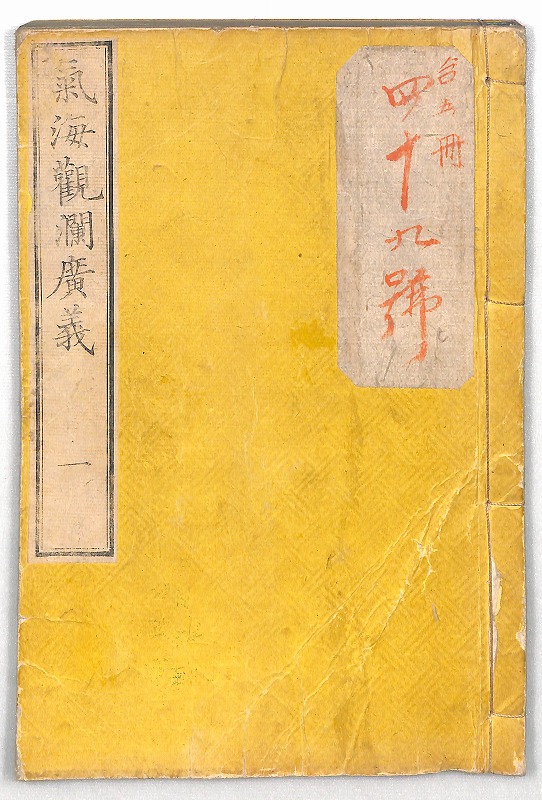 合五冊
四十九號
氣海觀瀾廣義
一